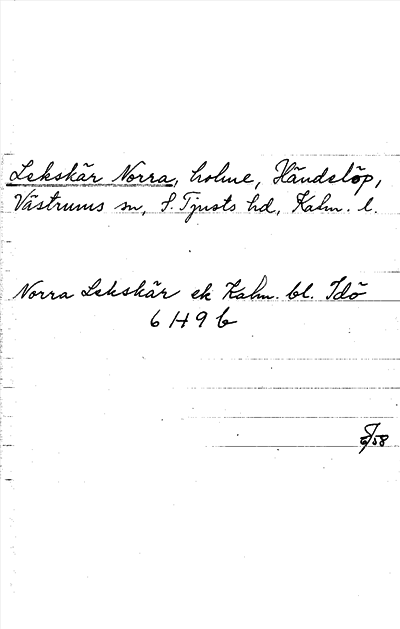 Lekskär Norra, holme, Händelöp,
Västrums sn, S. Tjusts hd, Kalm. l.
Norra Lekskär ek Kalm. bl. Idö
6 H 9 b